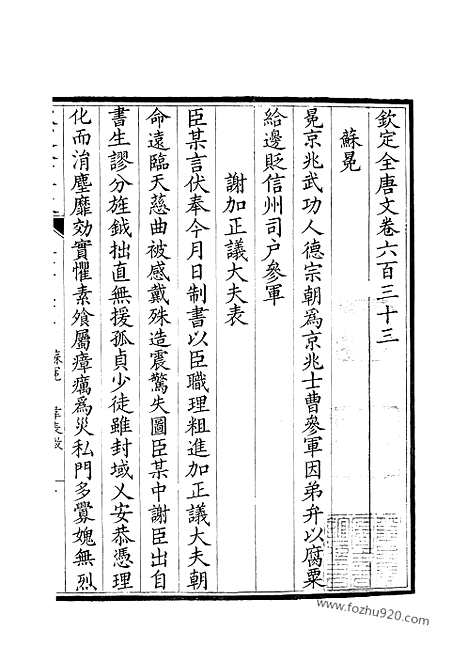 欽定全唐文卷六百三十三
蘇冕
冕京兆武功人德宗朝爲京兆士曹參軍因弟弁以腐粟
給邊貶信州司户參軍
謝加正議大夫表
臣某言伏奉今月日制書以臣職理粗進加正議大夫朝
命遠臨天慈曲被感戴殊造震驚失圖臣某中謝臣出自
書生謬分旌鉞拙直無援孤貞少徒雖封域乂安恭憑理
化而消塵靡効實懼素飱屬瘴癘爲災私門多釁媿無烈
蘇冕
www.fozhu920.com